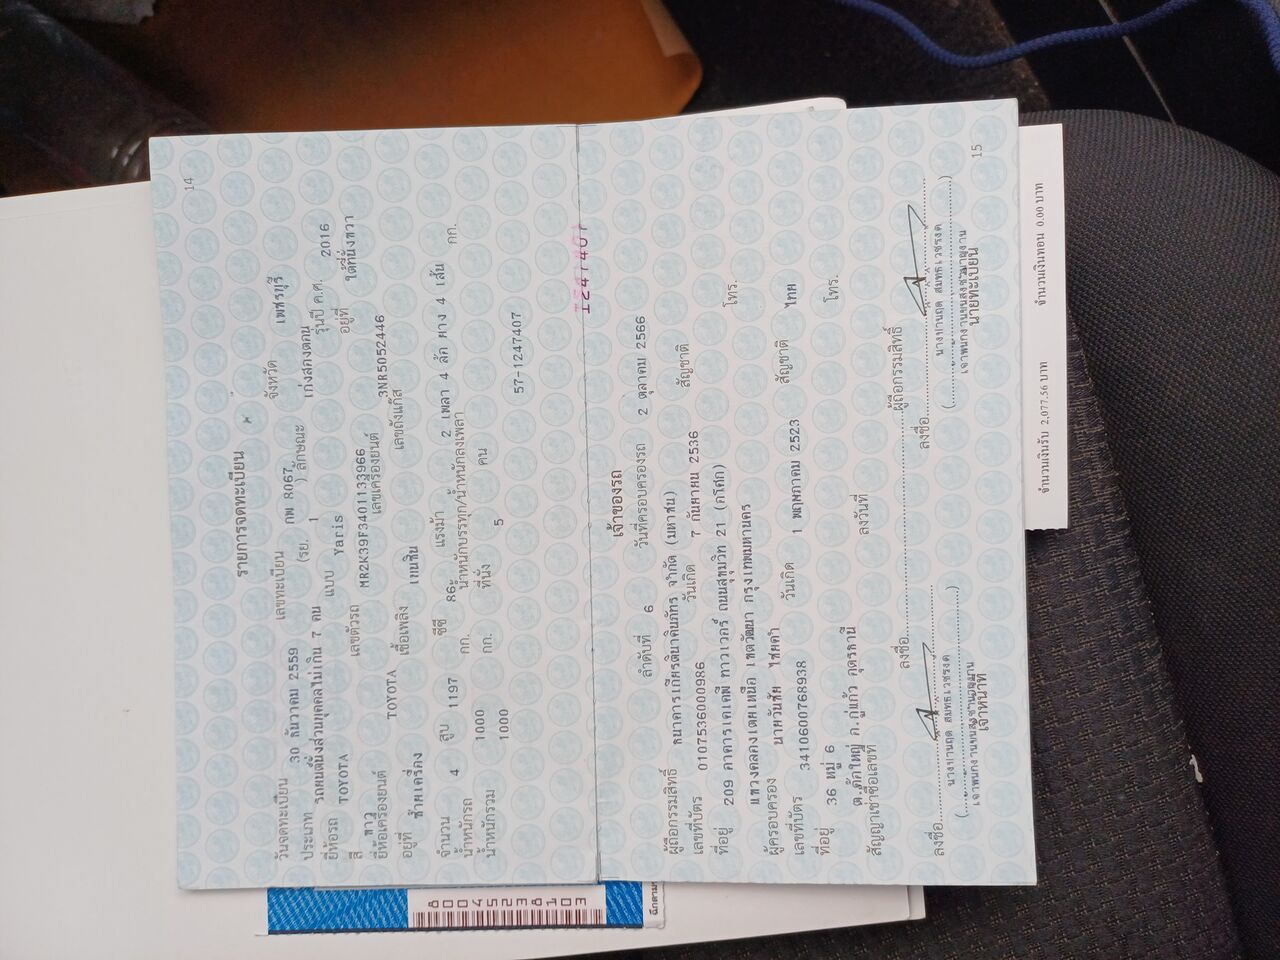 14
รายการจดทะเบียน
วันจดทะเบียน 30 ธันวาคม 2559 เลขทะเบียน กพ 8067 จังหวัด เพชรบุรี
ประเภท รถยนต์นั่งส่วนบุคคลไม่เกิน 7 คน (รย. 1 ) ลักษณะ เก๋งสองตอน
ยี่ห้อรถ TOYOTA แบบ Yaris รุ่นปี ค.ศ. 2016
สี ขาว เลขตัวรถ MR2K39F3401133966 อยู่ที่ ใต้ที่นั่งขวา
ยี่ห้อเครื่องยนต์ TOYOTA เลขเครื่องยนต์ 3NR5052446
อยู่ที่ ซ้ายเครื่อง เชื้อเพลิง เบนซิน เลขถังแก๊ส
จำนวน 4 สูบ 1197 ซีซี 86 แรงม้า 2 เพลา 4 ล้อ ยาง 4 เส้น
น้ำหนักรถ 1000 กก. น้ำหนักบรรทุก/น้ำหนักลงเพลา กก.
น้ำหนักรวม 1000 กก. ที่นั่ง 5 คน
57-1247407
1247407
เจ้าของรถ
ลำดับที่ 6 วันที่ครอบครองรถ 2 ตุลาคม 2566
ผู้ถือกรรมสิทธิ์ ธนาคารเกียรตินาคินภัทร จำกัด (มหาชน)
เลขที่บัตร 0107536000986 วันเกิด 7 กันยายน 2536 สัญชาติ
ที่อยู่ 209 อาคารเคเคพี ทาวเวอร์ ถนนสุขุมวิท 21 (อโศก)
แขวงคลองเตยเหนือ เขตวัฒนา กรุงเทพมหานคร โทร.
ผู้ครอบครอง นายวันชัย ไชยคำ
เลขที่บัตร 3410600768938 วันเกิด 1 พฤษภาคม 2523 สัญชาติ ไทย
ที่อยู่ 36 หมู่ 6
ต.ค้อใหญ่ อ.กู่แก้ว อุดรธานี โทร.
สัญญาเช่าซื้อเลขที่ ลงวันที่
ลงชื่อ ผู้ถือกรรมสิทธิ์
ลงชื่อ ลงชื่อ
เจ้าหน้าที่ นายทะเบียน
15
จำนวนเงินรับ 2,077.56 บาท จำนวนเงินทอน 0.00 บาท
80045238103